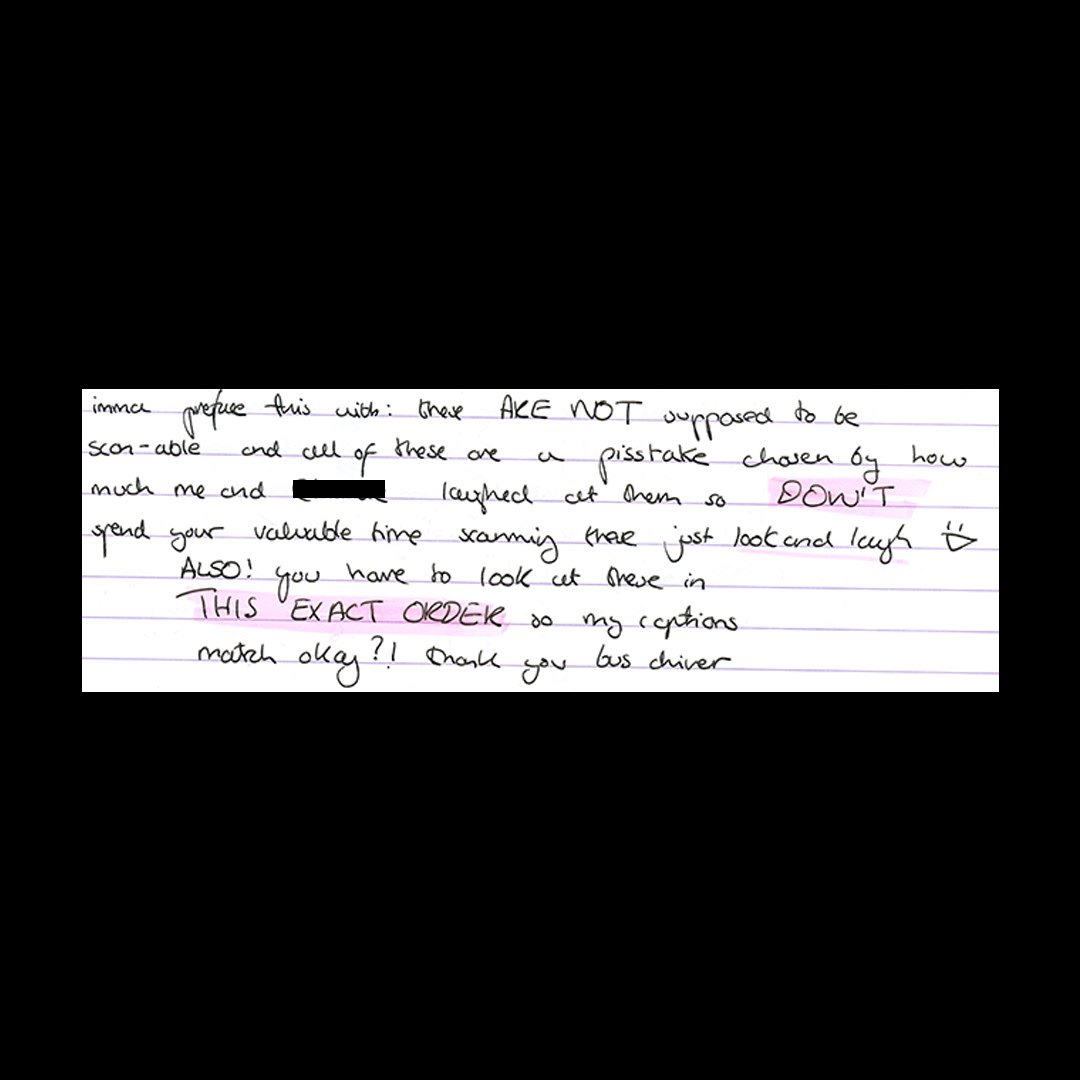 imma preface this with: these ARE NOT supposed to be
scan-able and all of these are a pisstake chosen by how
much me and laughed at them so DON'T
spend your valuable time scanning these just look and laugh
ALSO! you have to look at these in
THIS EXACT ORDER so my captions
match okay?! thank you bus driver